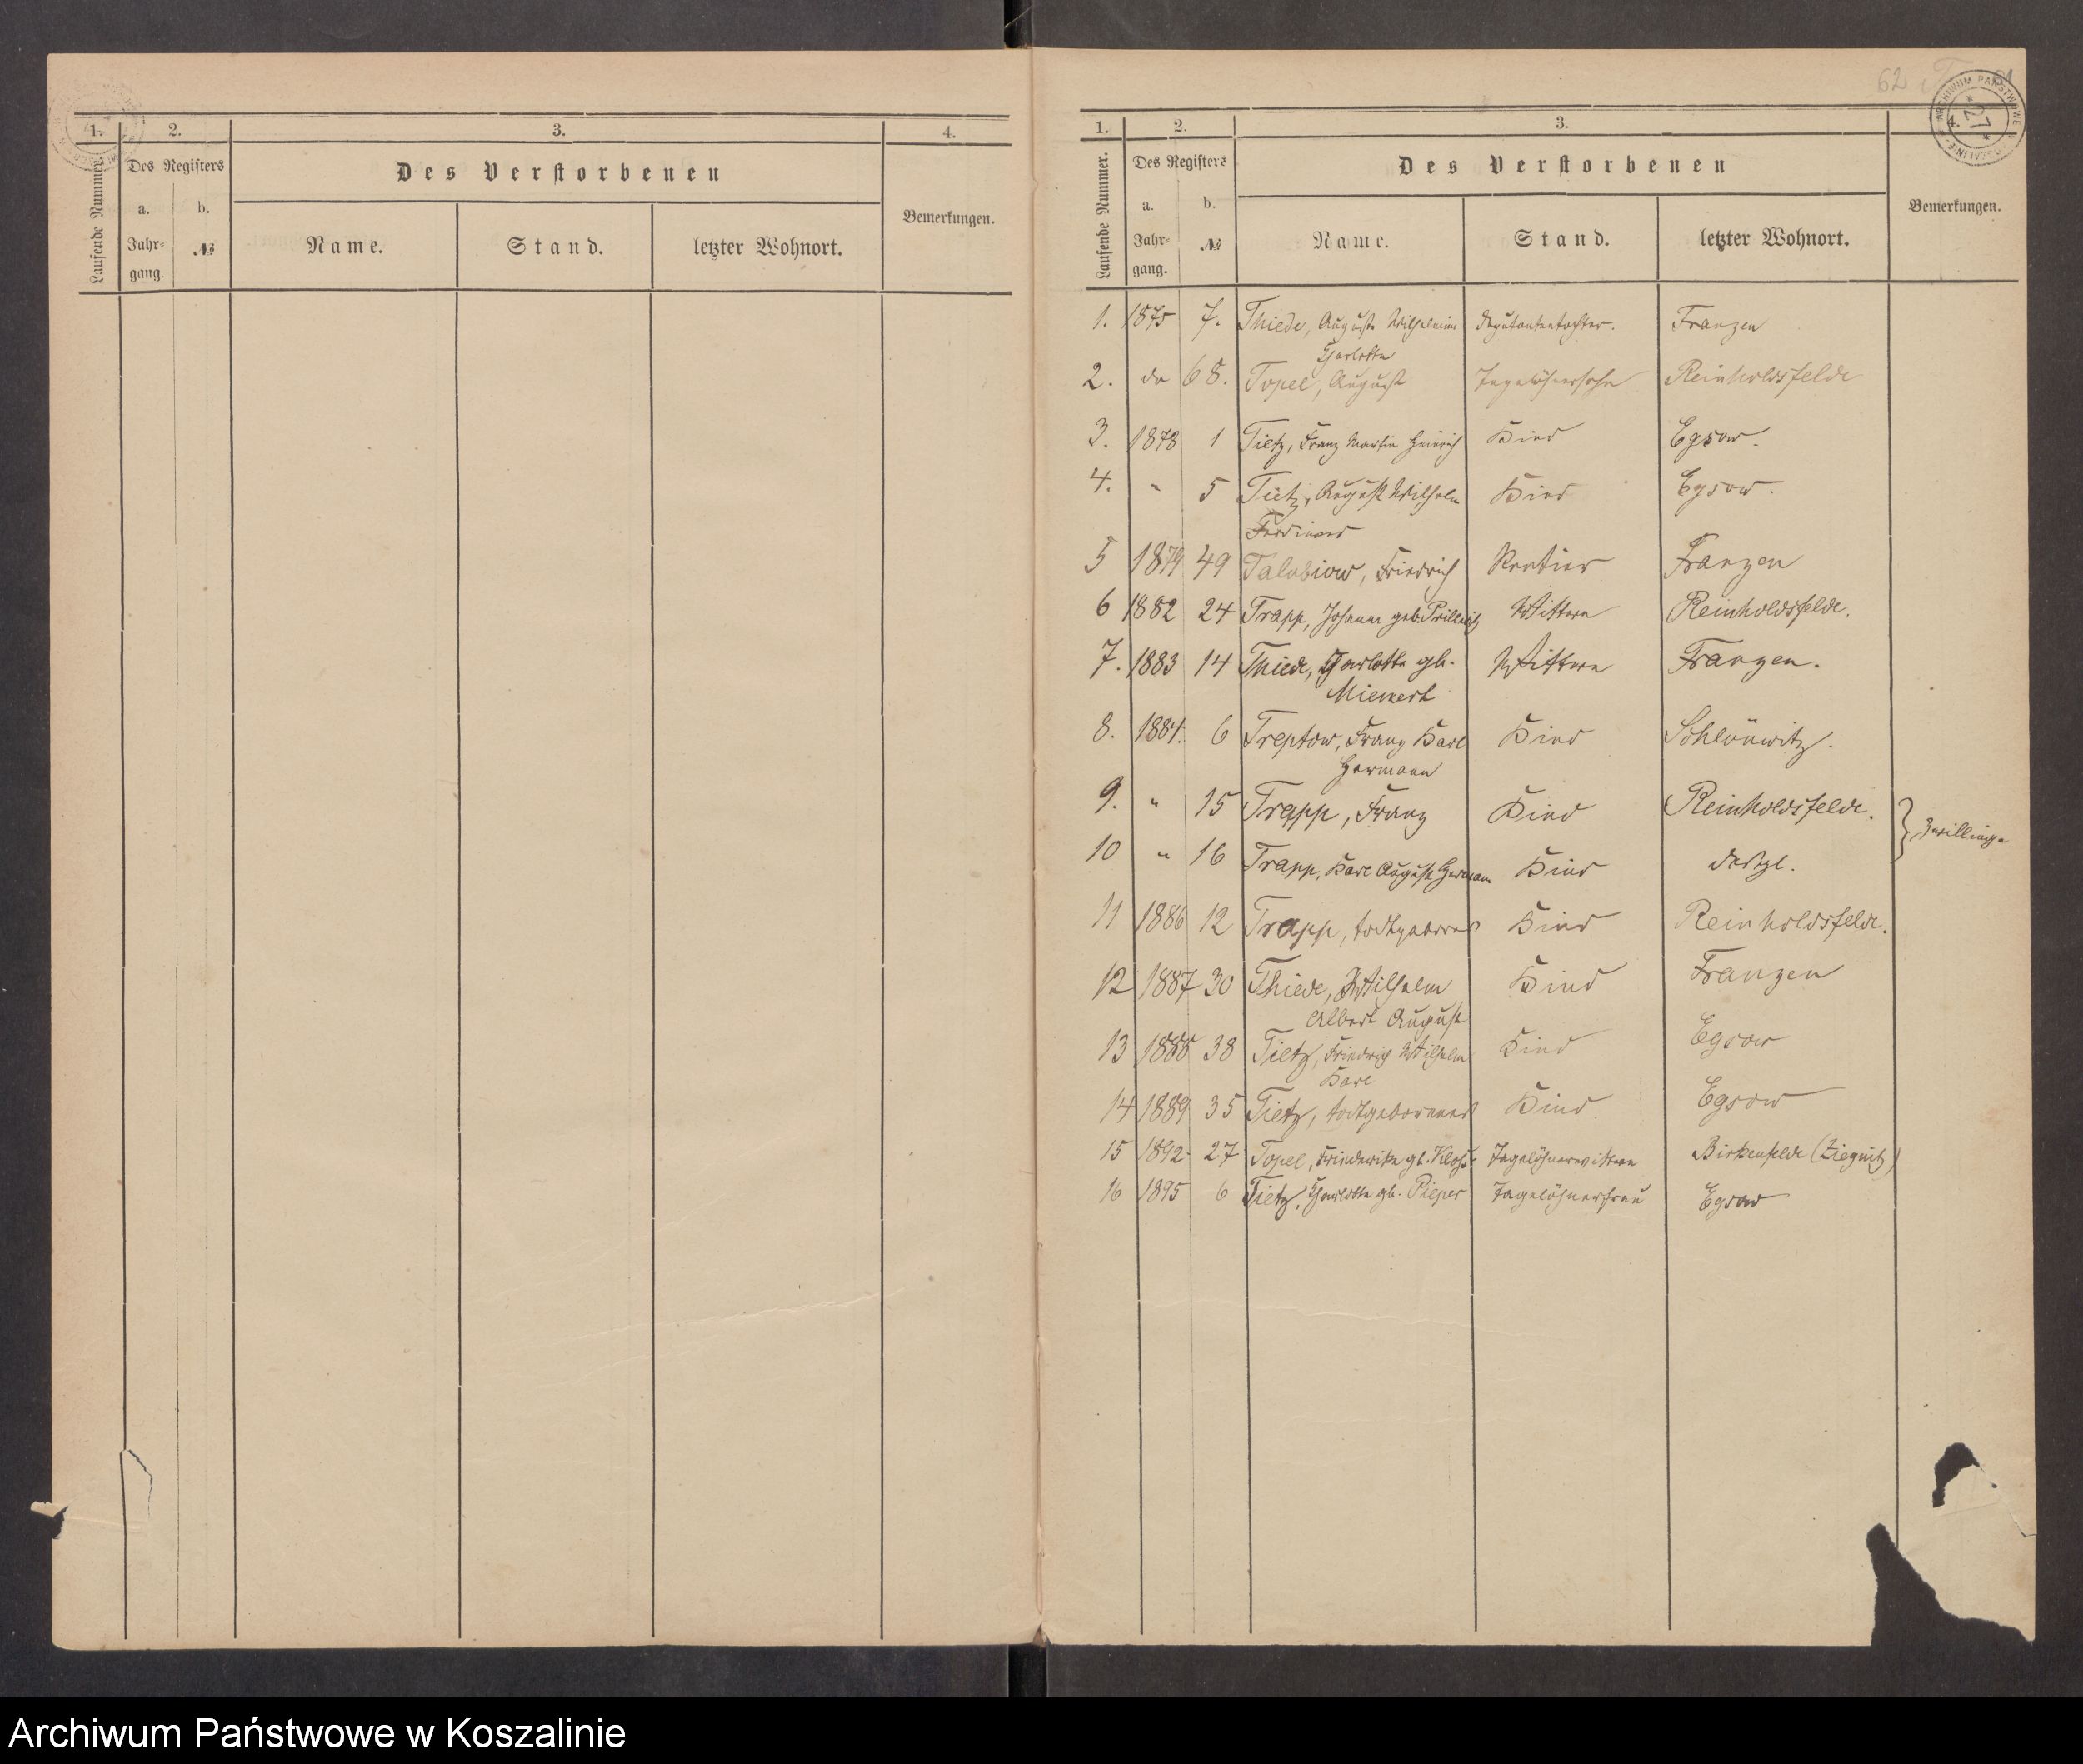 1. 2. 3. 4.
Laufende Nummer. Des Registers Des Verstorbenen Bemerkungen.
a. b.
Jahr- № Name. Stand. letzter Wohnort.
gang
62
ARCHIWUM PAŃSTWOWE W KOSZALINIE
* 27 *
1. 2. 3. 4.
Laufende Nummer. Des Registers Des Verstorbenen Bemerkungen.
a. b.
Jahr- № Name. Stand. letzter Wohnort.
gang.
1. 1875 7. Thiede, Auguste Wilhelmine Deputantentochter. Franzen
Charlotte
2. do 68. Topel, August Tagelöhnersohn Reinholdsfelde
3. 1878 1 Tietz, Franz Martin Heinrich Kind Egsow.
4. " 5 Tietz, August Wilhelm Kind Egsow.
Ferdinand
5 1879 49 Friedrich Rentier Franzen
6 1882 24 Trapp, Johanne geb. Prillwitz Wittwe Reinholdsfelde.
7. 1883 14 Thiede, Charlotte gb. Wittwe Franzen.
8. 1884. 6 Treptow, Franz Karl Kind Schlönwitz.
Hermann
9. " 15 Trapp, Franz Kind Reinholdsfelde. } Zwillinge
10 " 16 Trapp, Karl August Hermann Kind desgl.
11 1886 12 Trapp, todtgeboren Kind Reinholdsfelde.
12 1887 30 Thiede, Wilhelm Kind Franzen
Albert August
13 1888 38 Tietz, Friedrich Wilhelm Kind Egsow
Karl
14 1889 35 Tietz, todtgeborenes Kind Egsow
15 1892 27 Topel, Friederike gb. Tagelöhnerwittwe Birkenfelde (Ziegnitz)
16 1895 6 Tietz, Charlotte gb. Pieper Tagelöhnerfrau Egsow
Archiwum Państwowe w Koszalinie